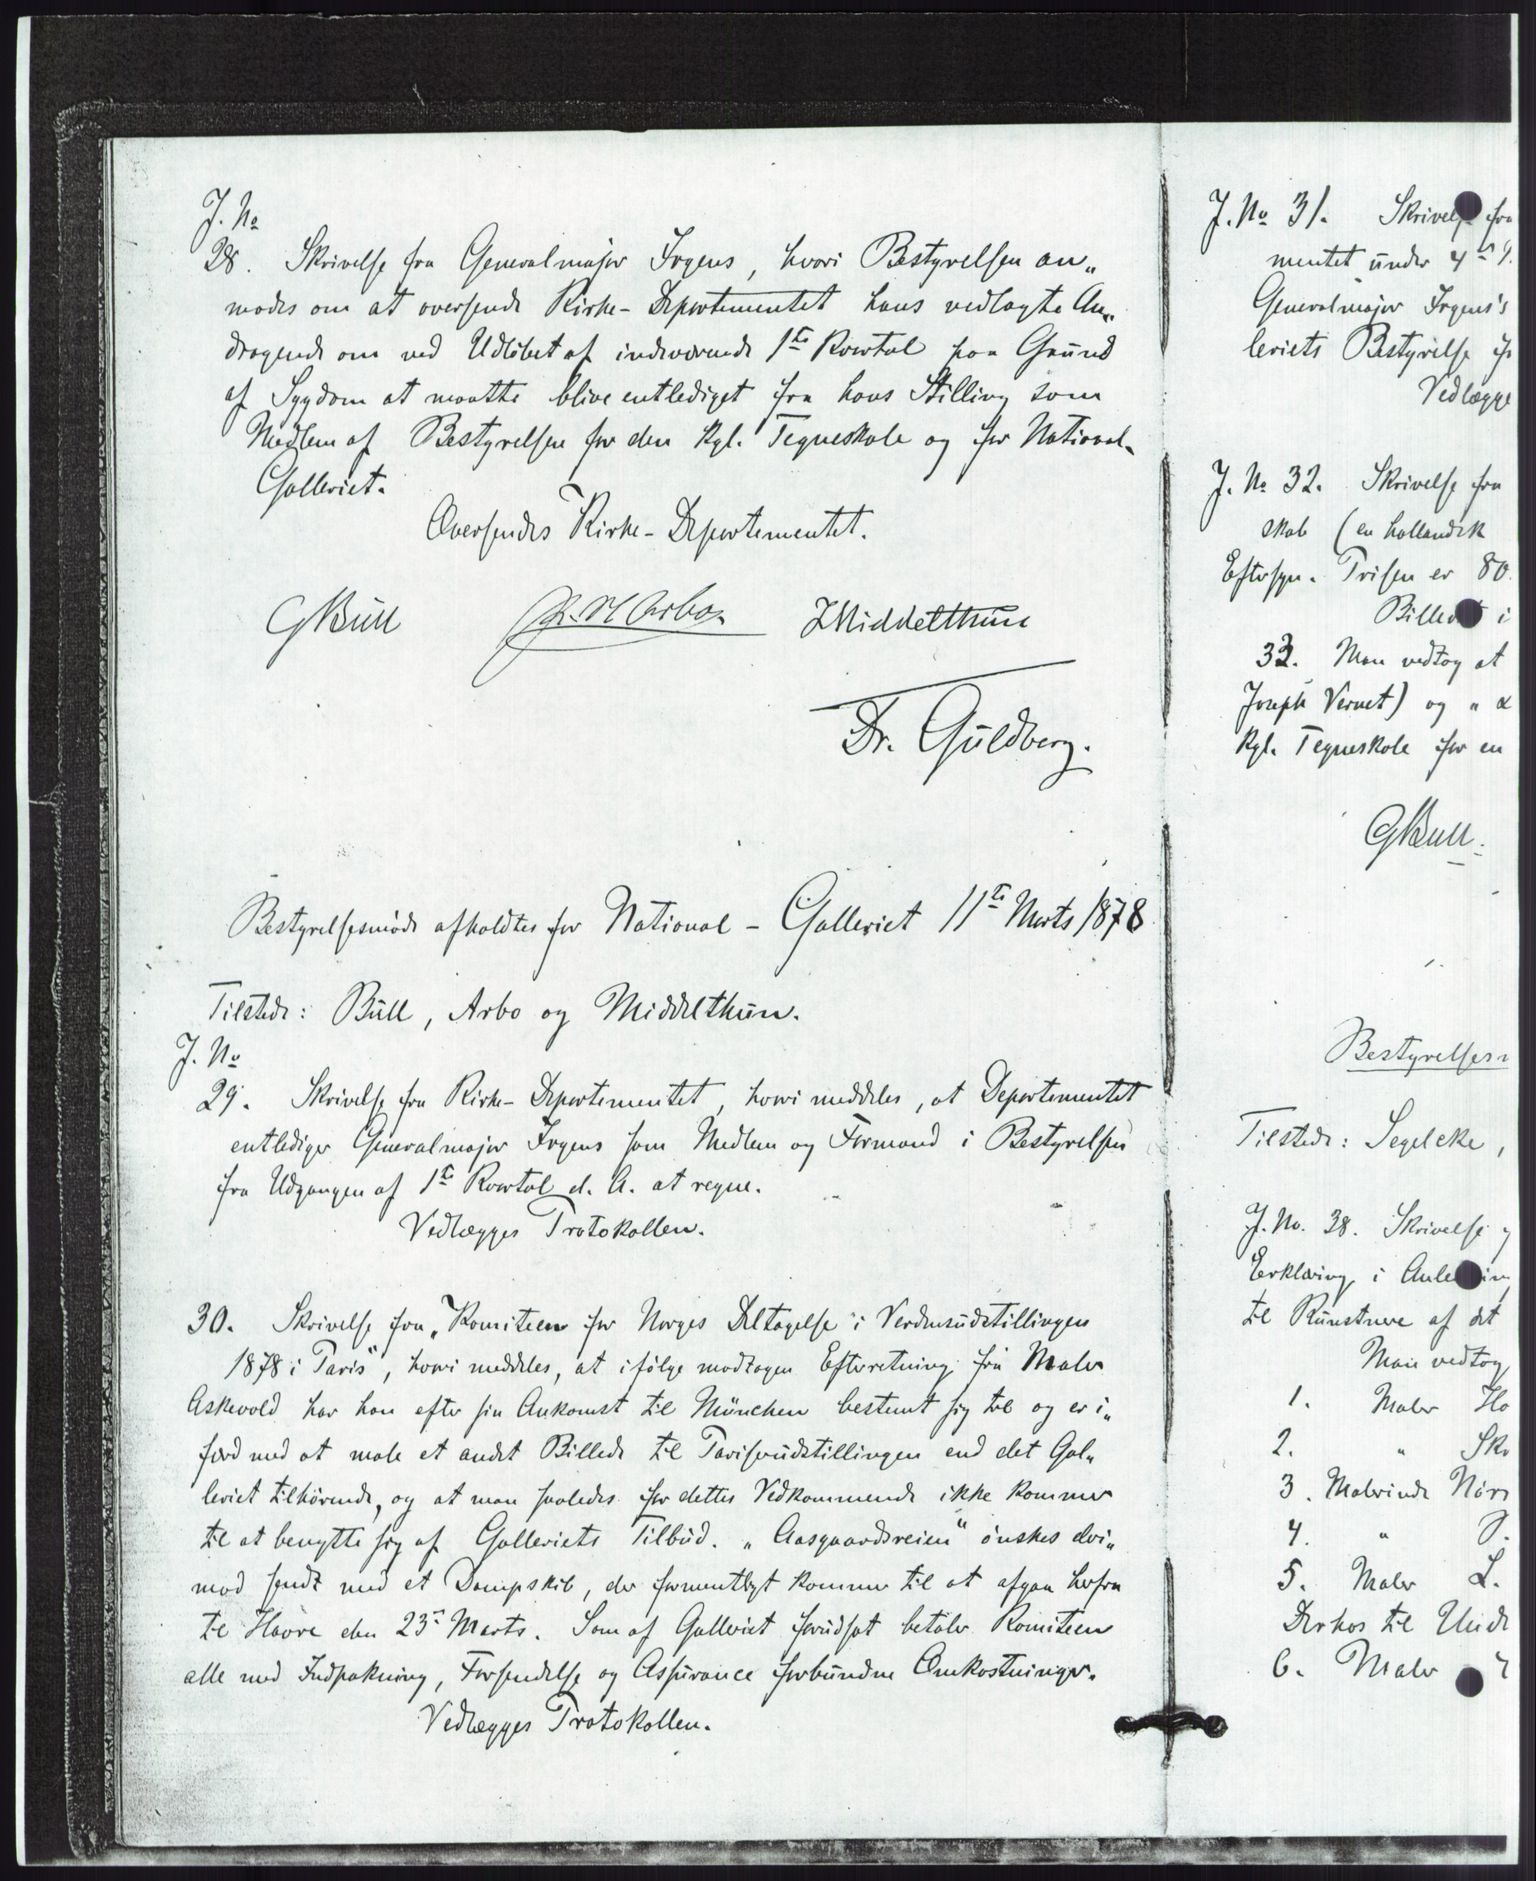 J. No
28. Skrivelse fra Generalmajor Irgens, hvori Bestyrelsen an„
modes om at oversende Kirke-Departementet hans vedlagte An„
dragende om ved Udløbet af indeværende 1ste Kvartal paa Grund
af Sygdom at maatte blive entlediget fra hans Stilling som
Medlem af Bestyrelsen for den kgl. Tegneskole og for National-
Galleriet.
Oversendes Kirke-Departementet.
GBull
Middelthun
Dr. Guldberg.
Bestyrelsesmøde afholdtes for National-Galleriet 11te Marts 1878
Tilstede: Bull, Arbo og Middelthun.
J. No
29. Skrivelse fra Kirke-Departementet, hvori meddeles, at Departementet
entlediger Generalmajor Irgens som Medlem og Formand i Bestyrelsen
fra Udgangen af 1ste Kvartal d. A. at regne.
Vedlægges Protokollen.
30. Skrivelse fra „Komiteen for Norges Deltagelse i Verdensudstillingen
1878 i Paris", hvori meddeles, at ifølge modtagen Efterretning fra Maler
Askevold har han efter sin Ankomst til München bestemt sig til og er i„
færd med at male et andet Billede til Pariserudstillingen end det Gal„
leriet tilhørende, og at man saaledes for dettes Vedkommende ikke kommer
til at benytte sig af Galleriets Tilbud. „Aasgaardsreien" ønskes deri„
mod sendt med et Dampskib, der formentligt kommer til at afgaa herfra
til Havre den 23de Marts. Som af Galleriet forudsat betaler Komiteen
alle med Indpakning, Forsendelse og Assurance forbundne Omkostninger.
Vedlægges Protokollen.
J. No 31. Skrivelse fra
mentet under 4de
Generalmajor Irgens's
leriets Bestyrelse
Vedlægge
J. No 32. Skrivelse fra
skab (en hollandsk
Eftersyn. Prisen er 80
Billedet i
33. Man vedtog at
Joseph Vernet) og „
kgl. Tegneskole for en
GBull.
Bestyrelses
Tilstede: Segelcke,
J. No. 38. Skrivelse
Erklæring i Anledning
til Kunstnere af det
Man vedtog
1. Maler Ho
2. „ Sk
3. Malerinde
4. „
5. Maler L.
Derhos til
6. Maler